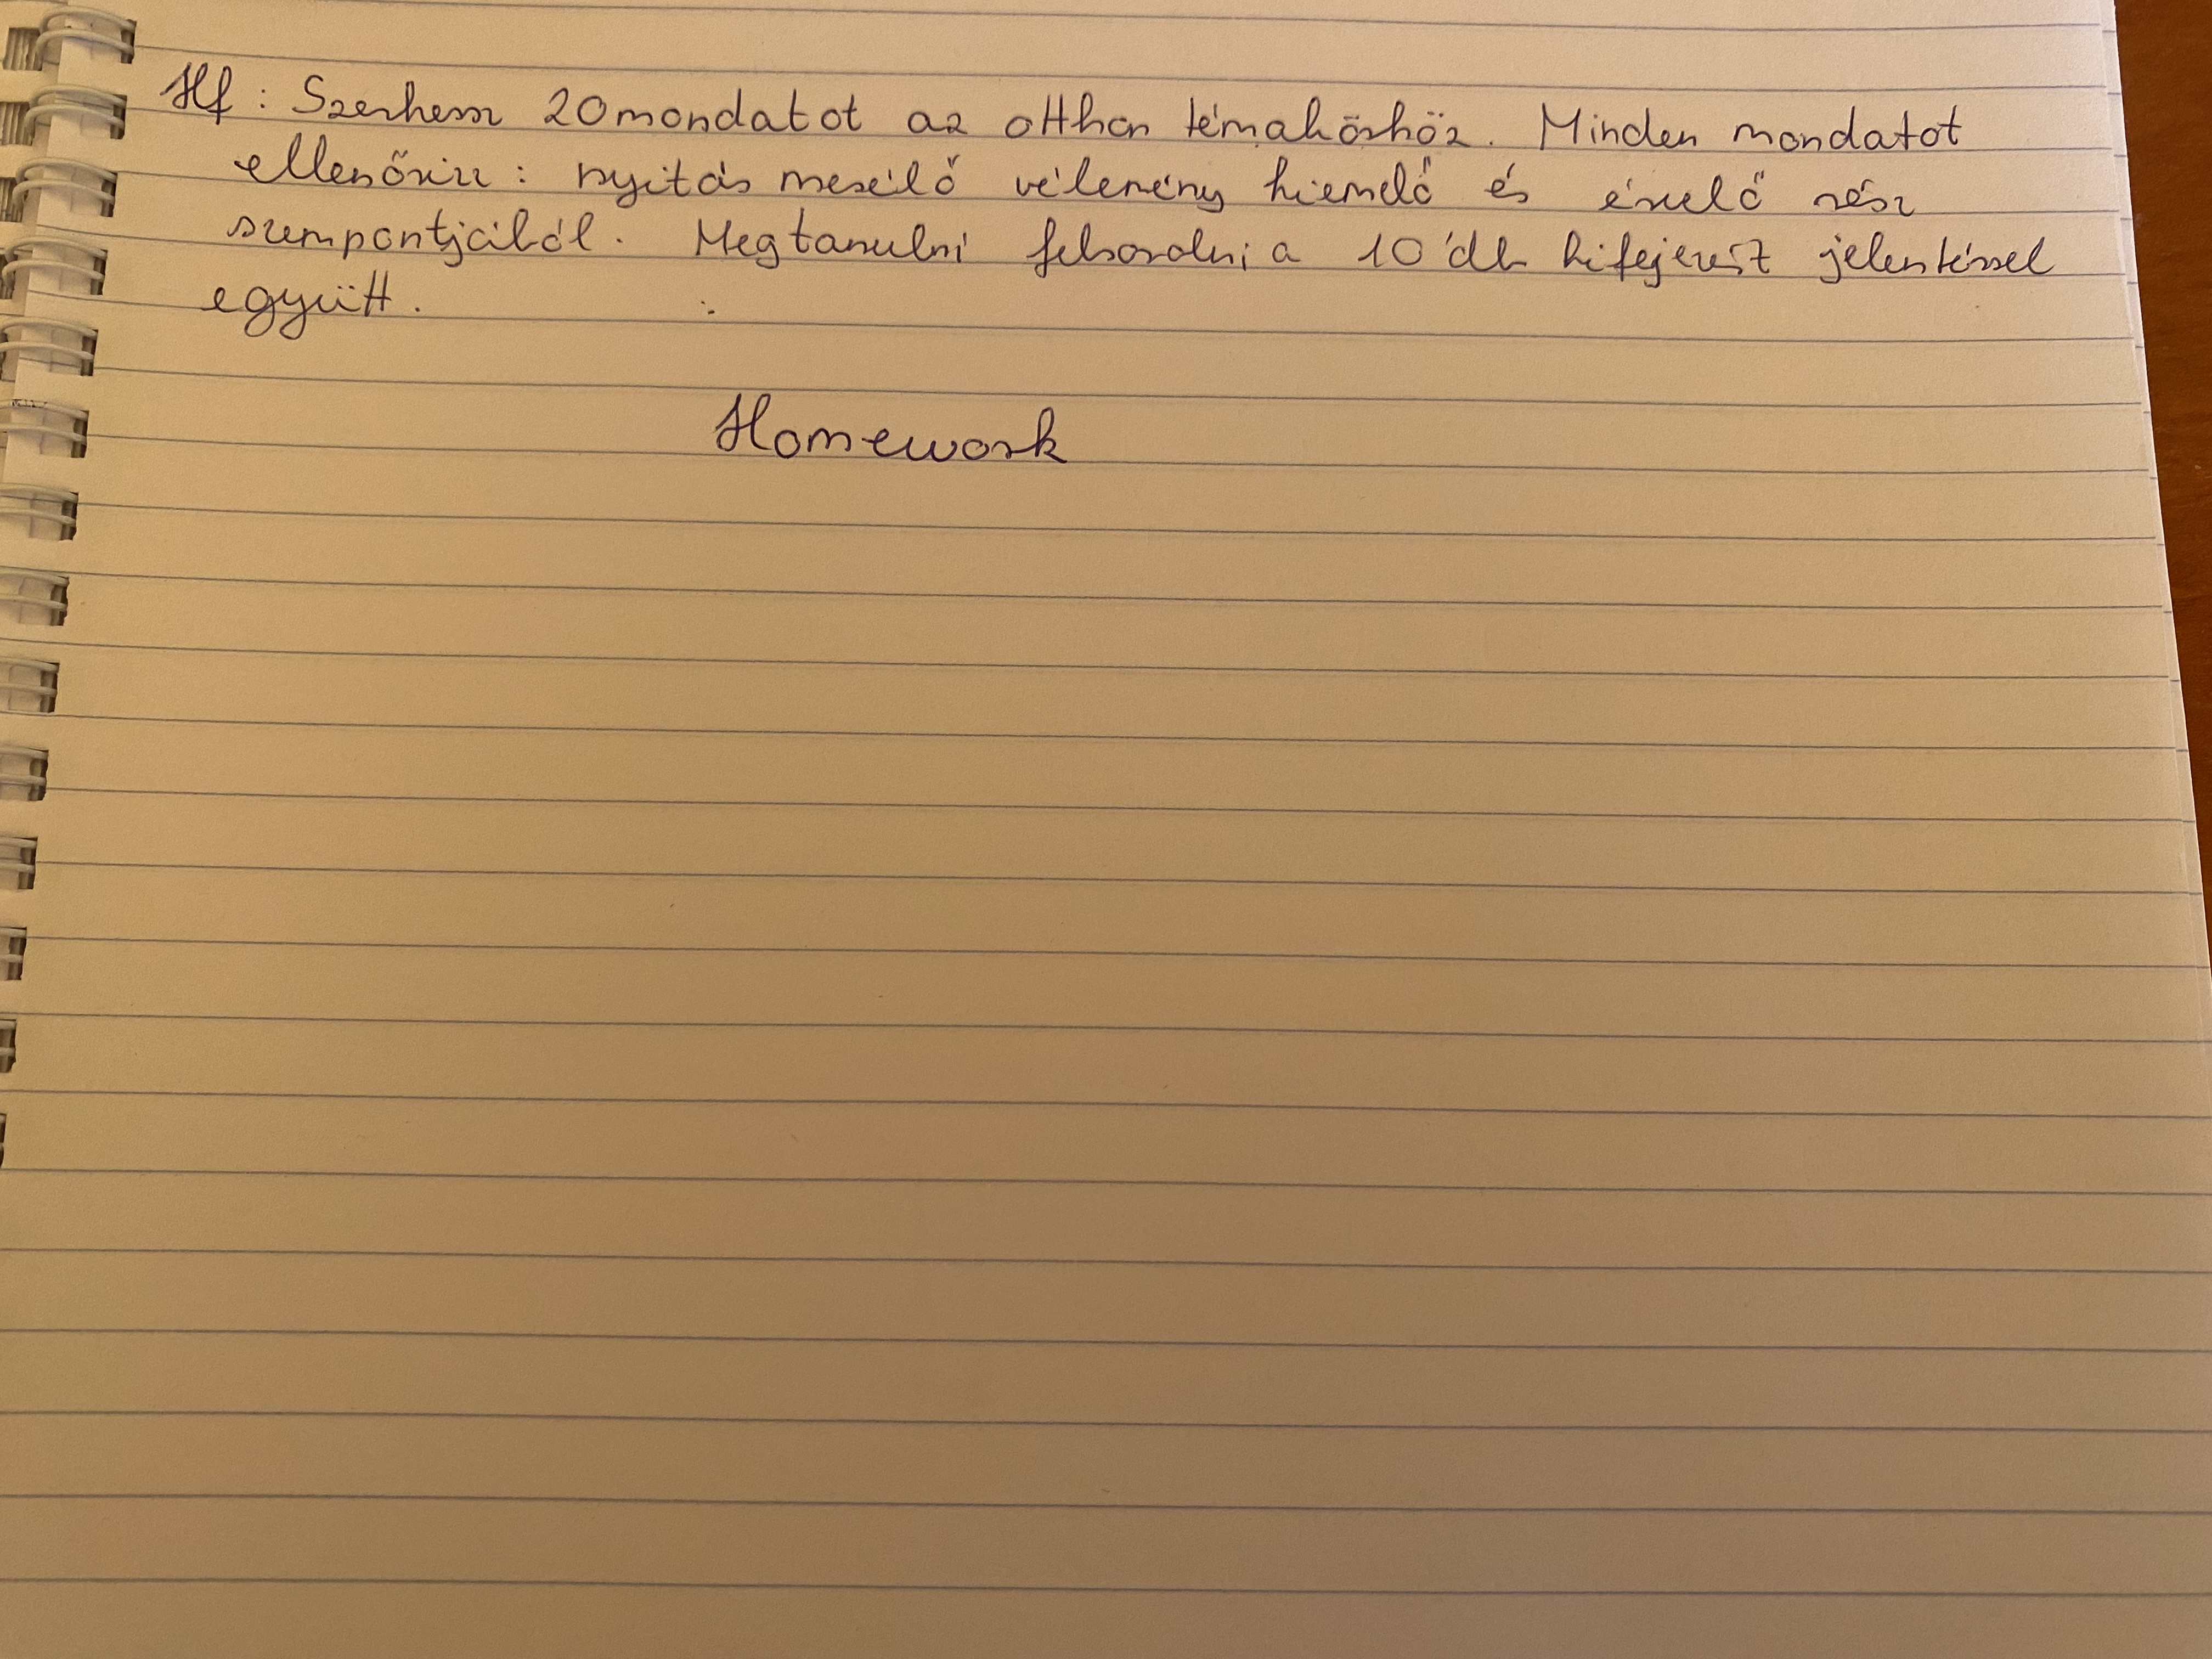 Hf: Szerkessz 20 mondatot az otthon témakörhöz. Minden mondatot
ellenőrizz: nyitás mesélő vélemény kiemelő és érvelő rész
szempontjából. Megtanulni felsorolni a 10 db kifejezést jelentéssel
együtt.
Homework